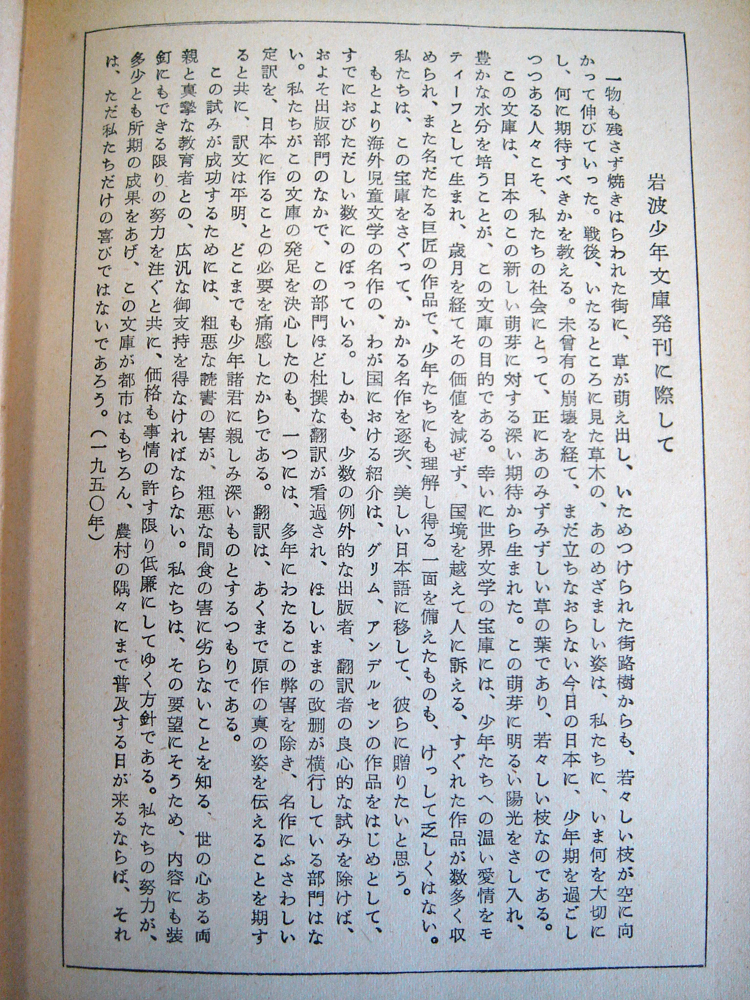 岩波少年文庫発刊に際して
一物も残さず焼きはらわれた街に、草が萌え出し、いためつけられた街路樹からも、若々しい枝が空に向
かって伸びていった。戦後、いたるところに見た草木の、あのめざましい姿は、私たちに、いま何を大切に
し、何に期待すべきかを教える。未曾有の崩壊を経て、まだ立ちなおらない今日の日本に、少年期を過ごし
つつある人々こそ、私たちの社会にとって、正にあのみずみずしい草の葉であり、若々しい枝なのである。
この文庫は、日本のこの新しい萌芽に対する深い期待から生まれた。この萌芽に明るい陽光をさし入れ、
豊かな水分を培うことが、この文庫の目的である。幸いに世界文学の宝庫には、少年たちへの温い愛情をモ
ティーフとして生まれ、歳月を経てその価値を減ぜず、国境を越えて人に訴える、すぐれた作品が数多く収
められ、また名だたる巨匠の作品で、少年たちにも理解し得る一面を備えたものも、けっして乏しくはない。
私たちは、この宝庫をさぐって、かかる名作を逐次、美しい日本語に移して、彼らに贈りたいと思う。
もとより海外児童文学の名作の、わが国における紹介は、グリム、アンデルセンの作品をはじめとして、
すでにおびただしい数にのぼっている。しかも、少数の例外的な出版者、翻訳者の良心的な試みを除けば、
およそ出版部門のなかで、この部門ほど杜撰な翻訳が看過され、ほしいままの改刪が横行している部門はな
い。私たちがこの文庫の発足を決心したのも、一つには、多年にわたるこの弊害を除き、名作にふさわしい
定訳を、日本に作ることの必要を痛感したからである。翻訳は、あくまで原作の真の姿を伝えることを期す
ると共に、訳文は平明、どこまでも少年諸君に親しみ深いものとするつもりである。
この試みが成功するためには、粗悪な読書の害が、粗悪な間食の害に劣らないことを知る、世の心ある両
親と真摯な教育者との、広汎な御支持を得なければならない。私たちは、その要望にそうため、内容にも装
釘にもできる限りの努力を注ぐと共に、価格も事情の許す限り低廉にしてゆく方針である。私たちの努力が、
多少とも所期の成果をあげ、この文庫が都市はもちろん、農村の隅々にまで普及する日が来るならば、それ
は、ただ私たちだけの喜びではないであろう。（一九五〇年）